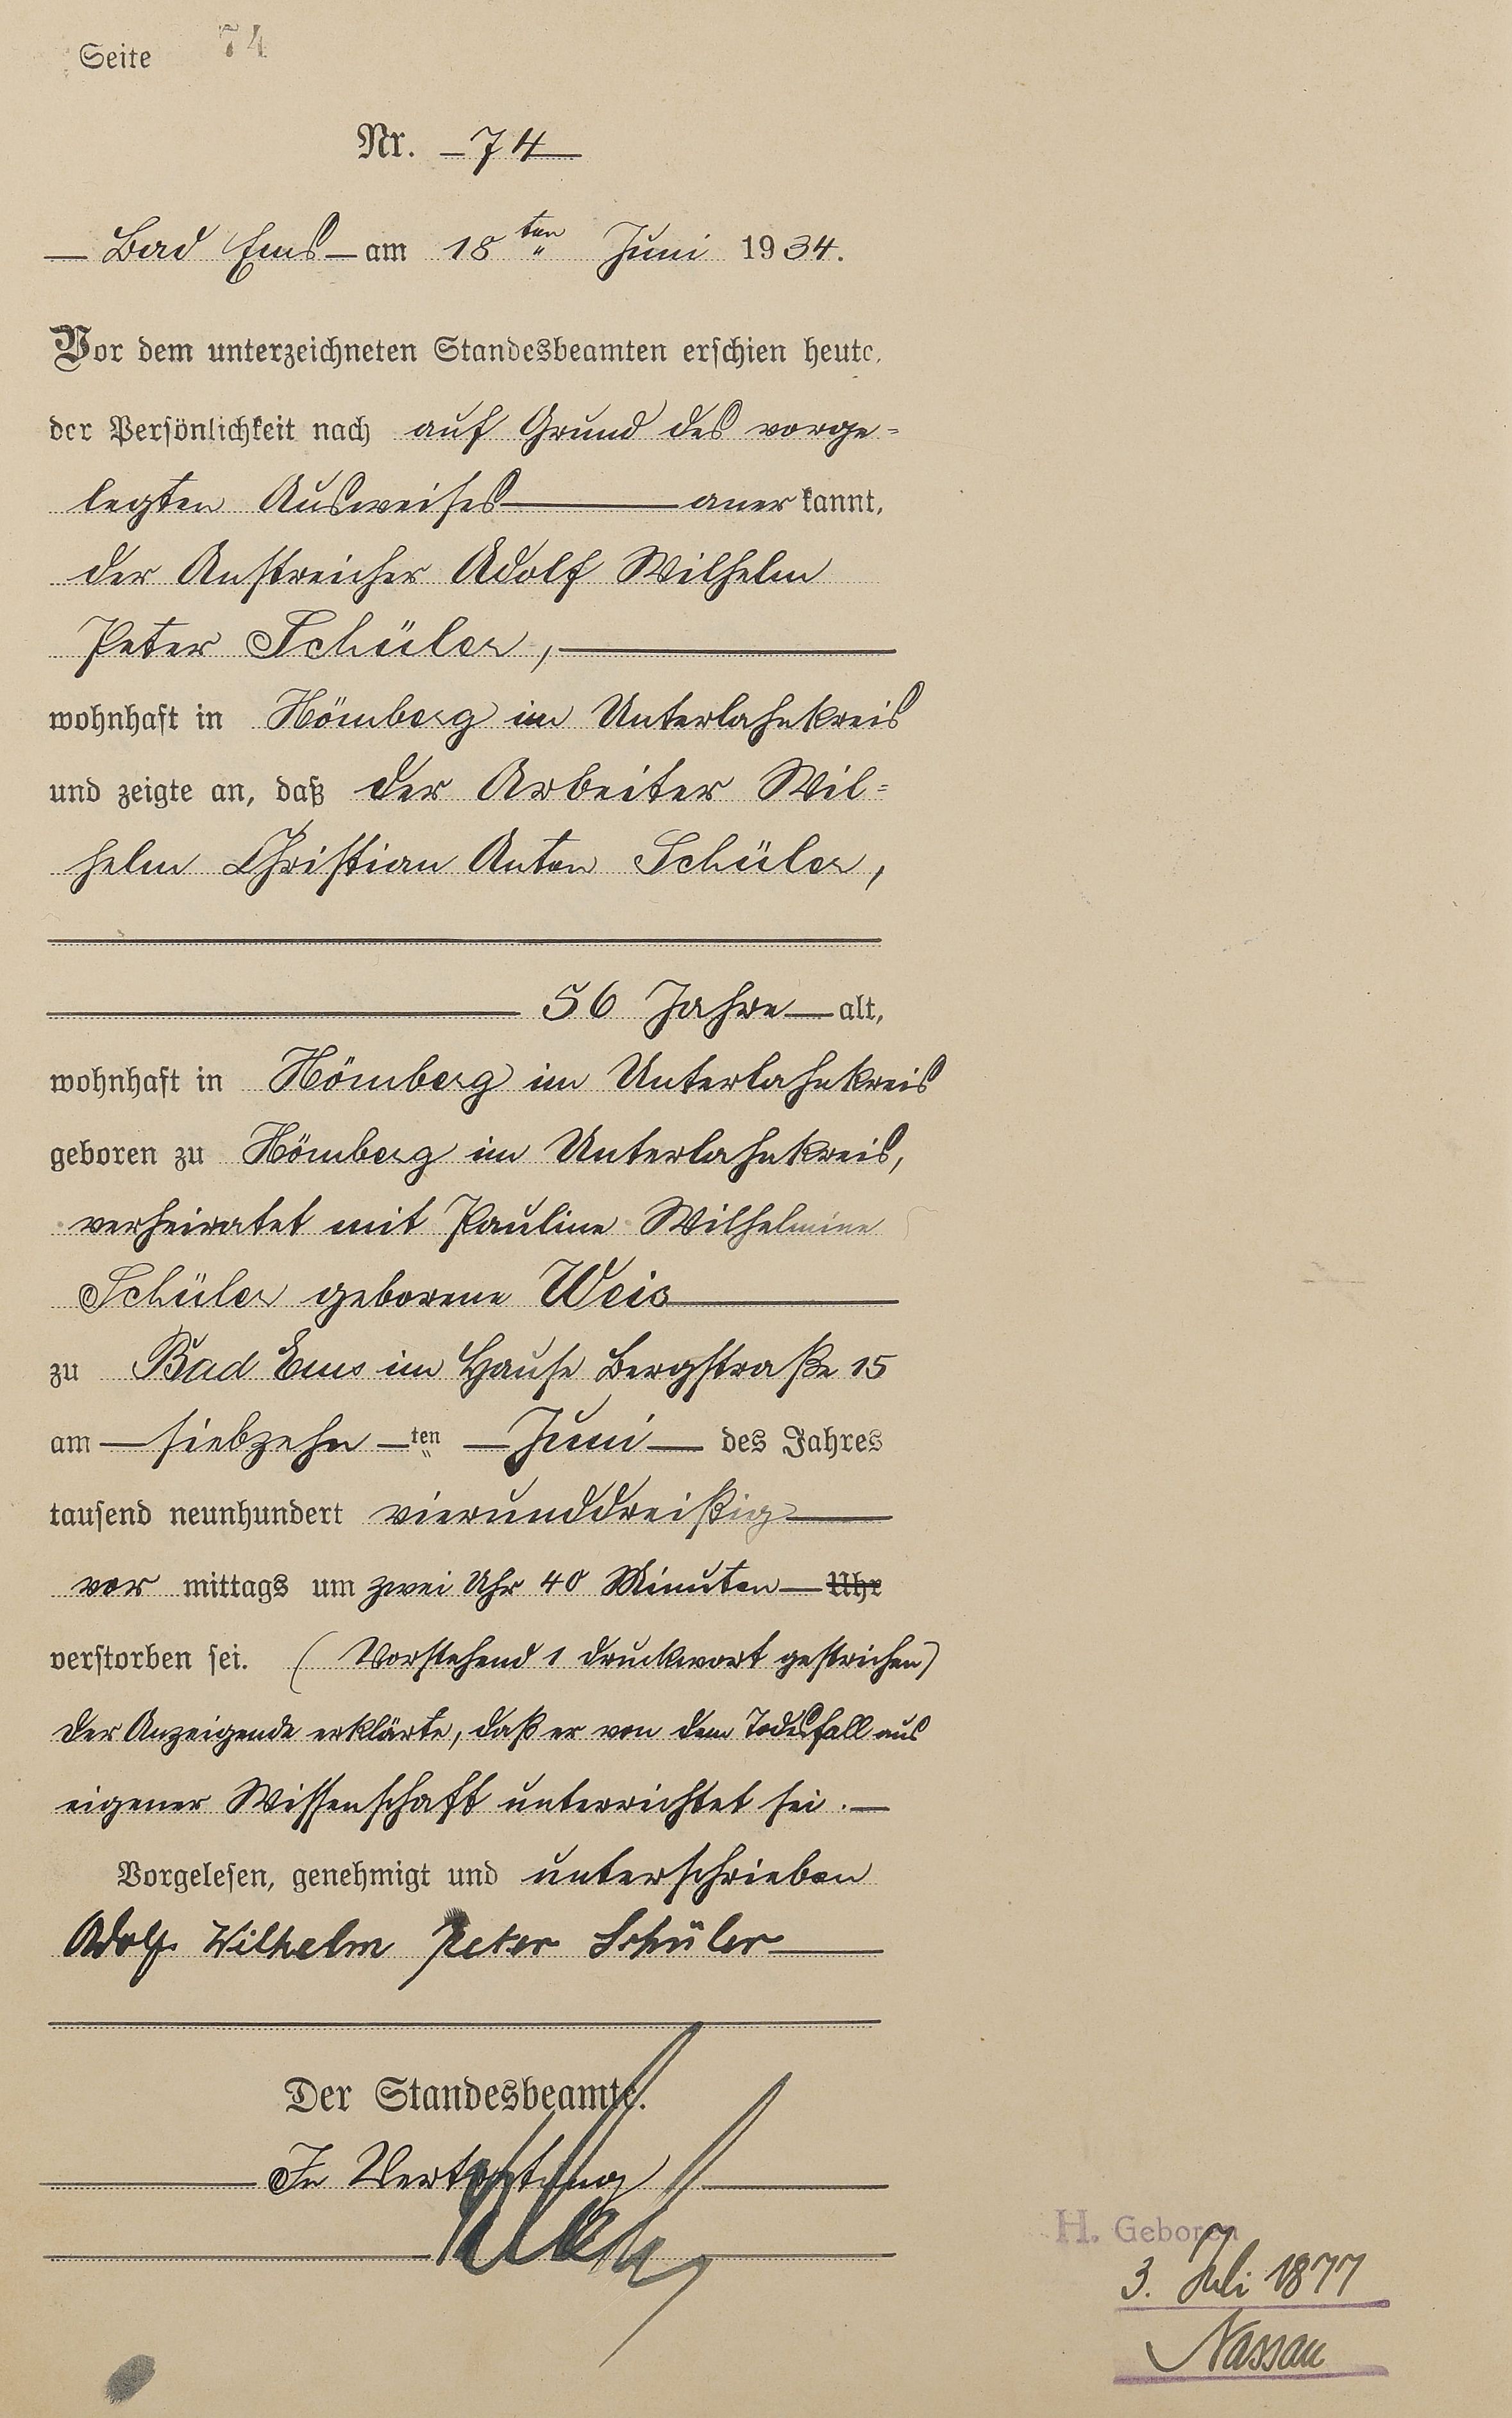 Seite 74
Nr. 74
Bad Ems am 18ten Juni 1934.
Vor dem unterzeichneten Standesbeamten erschien heute,
der Persönlichkeit nach auf Grund des vorge=
legten Ausweises anerkannt,
der Anstreicher Adolf Wilhelm
Peter Schüler,
wohnhaft in Hömberg im Unterlahnkreis
und zeigte an, daß der Arbeiter Wil=
helm Christian Anton Schüler,
56 Jahre alt,
wohnhaft in Hömberg im Unterlahnkreis
geboren zu Hömberg im Unterlahnkreis,
verheiratet mit Pauline Wilhelmine
Schüler geborene Weis
zu Bad Ems im Hause Bergstraße 15
am siebzehnten Juni des Jahres
tausend neunhundert vierunddreißig
vor mittags um zwei Uhr 40 Minuten Uhr
verstorben sei. (Vorstehend 1 Druckwort gestrichen)
Der Anzeigende erklärte, daß er von dem Todesfall aus
eigener Wissenschaft unterrichtet sei.
Vorgelesen, genehmigt und unterschrieben
Adolf Wilhelm Peter Schüler
Der Standesbeamte.
In Vertretung
H. Geboren
3. Juli 1877
Nassau